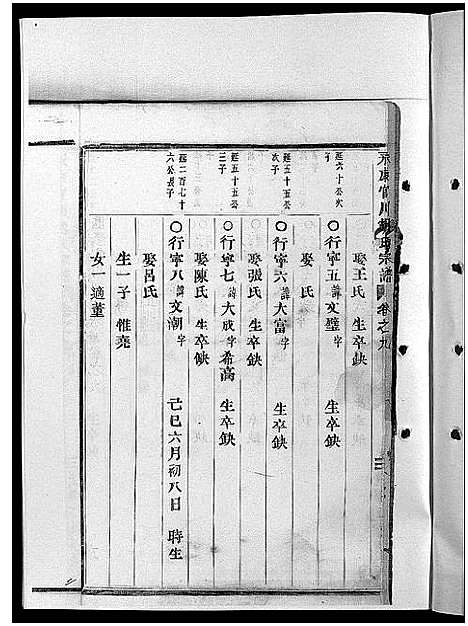 永康官川胡氏宗譜 卷之九
娶王氏 生卒缺
延六十公次子
〇行寧五諱文璧字 生卒缺
娶 氏
延五十五公次子
〇行寧六諱大富字 生卒缺
娶張氏 生卒缺
延五十五公三子
〇行寧七諱大成字希高 生卒缺
娶陳氏 生卒缺
延二百七十六公長子
〇行寧八諱文潮字 己巳六月初八日 時生
娶呂氏
生一子 惟堯
女一適董